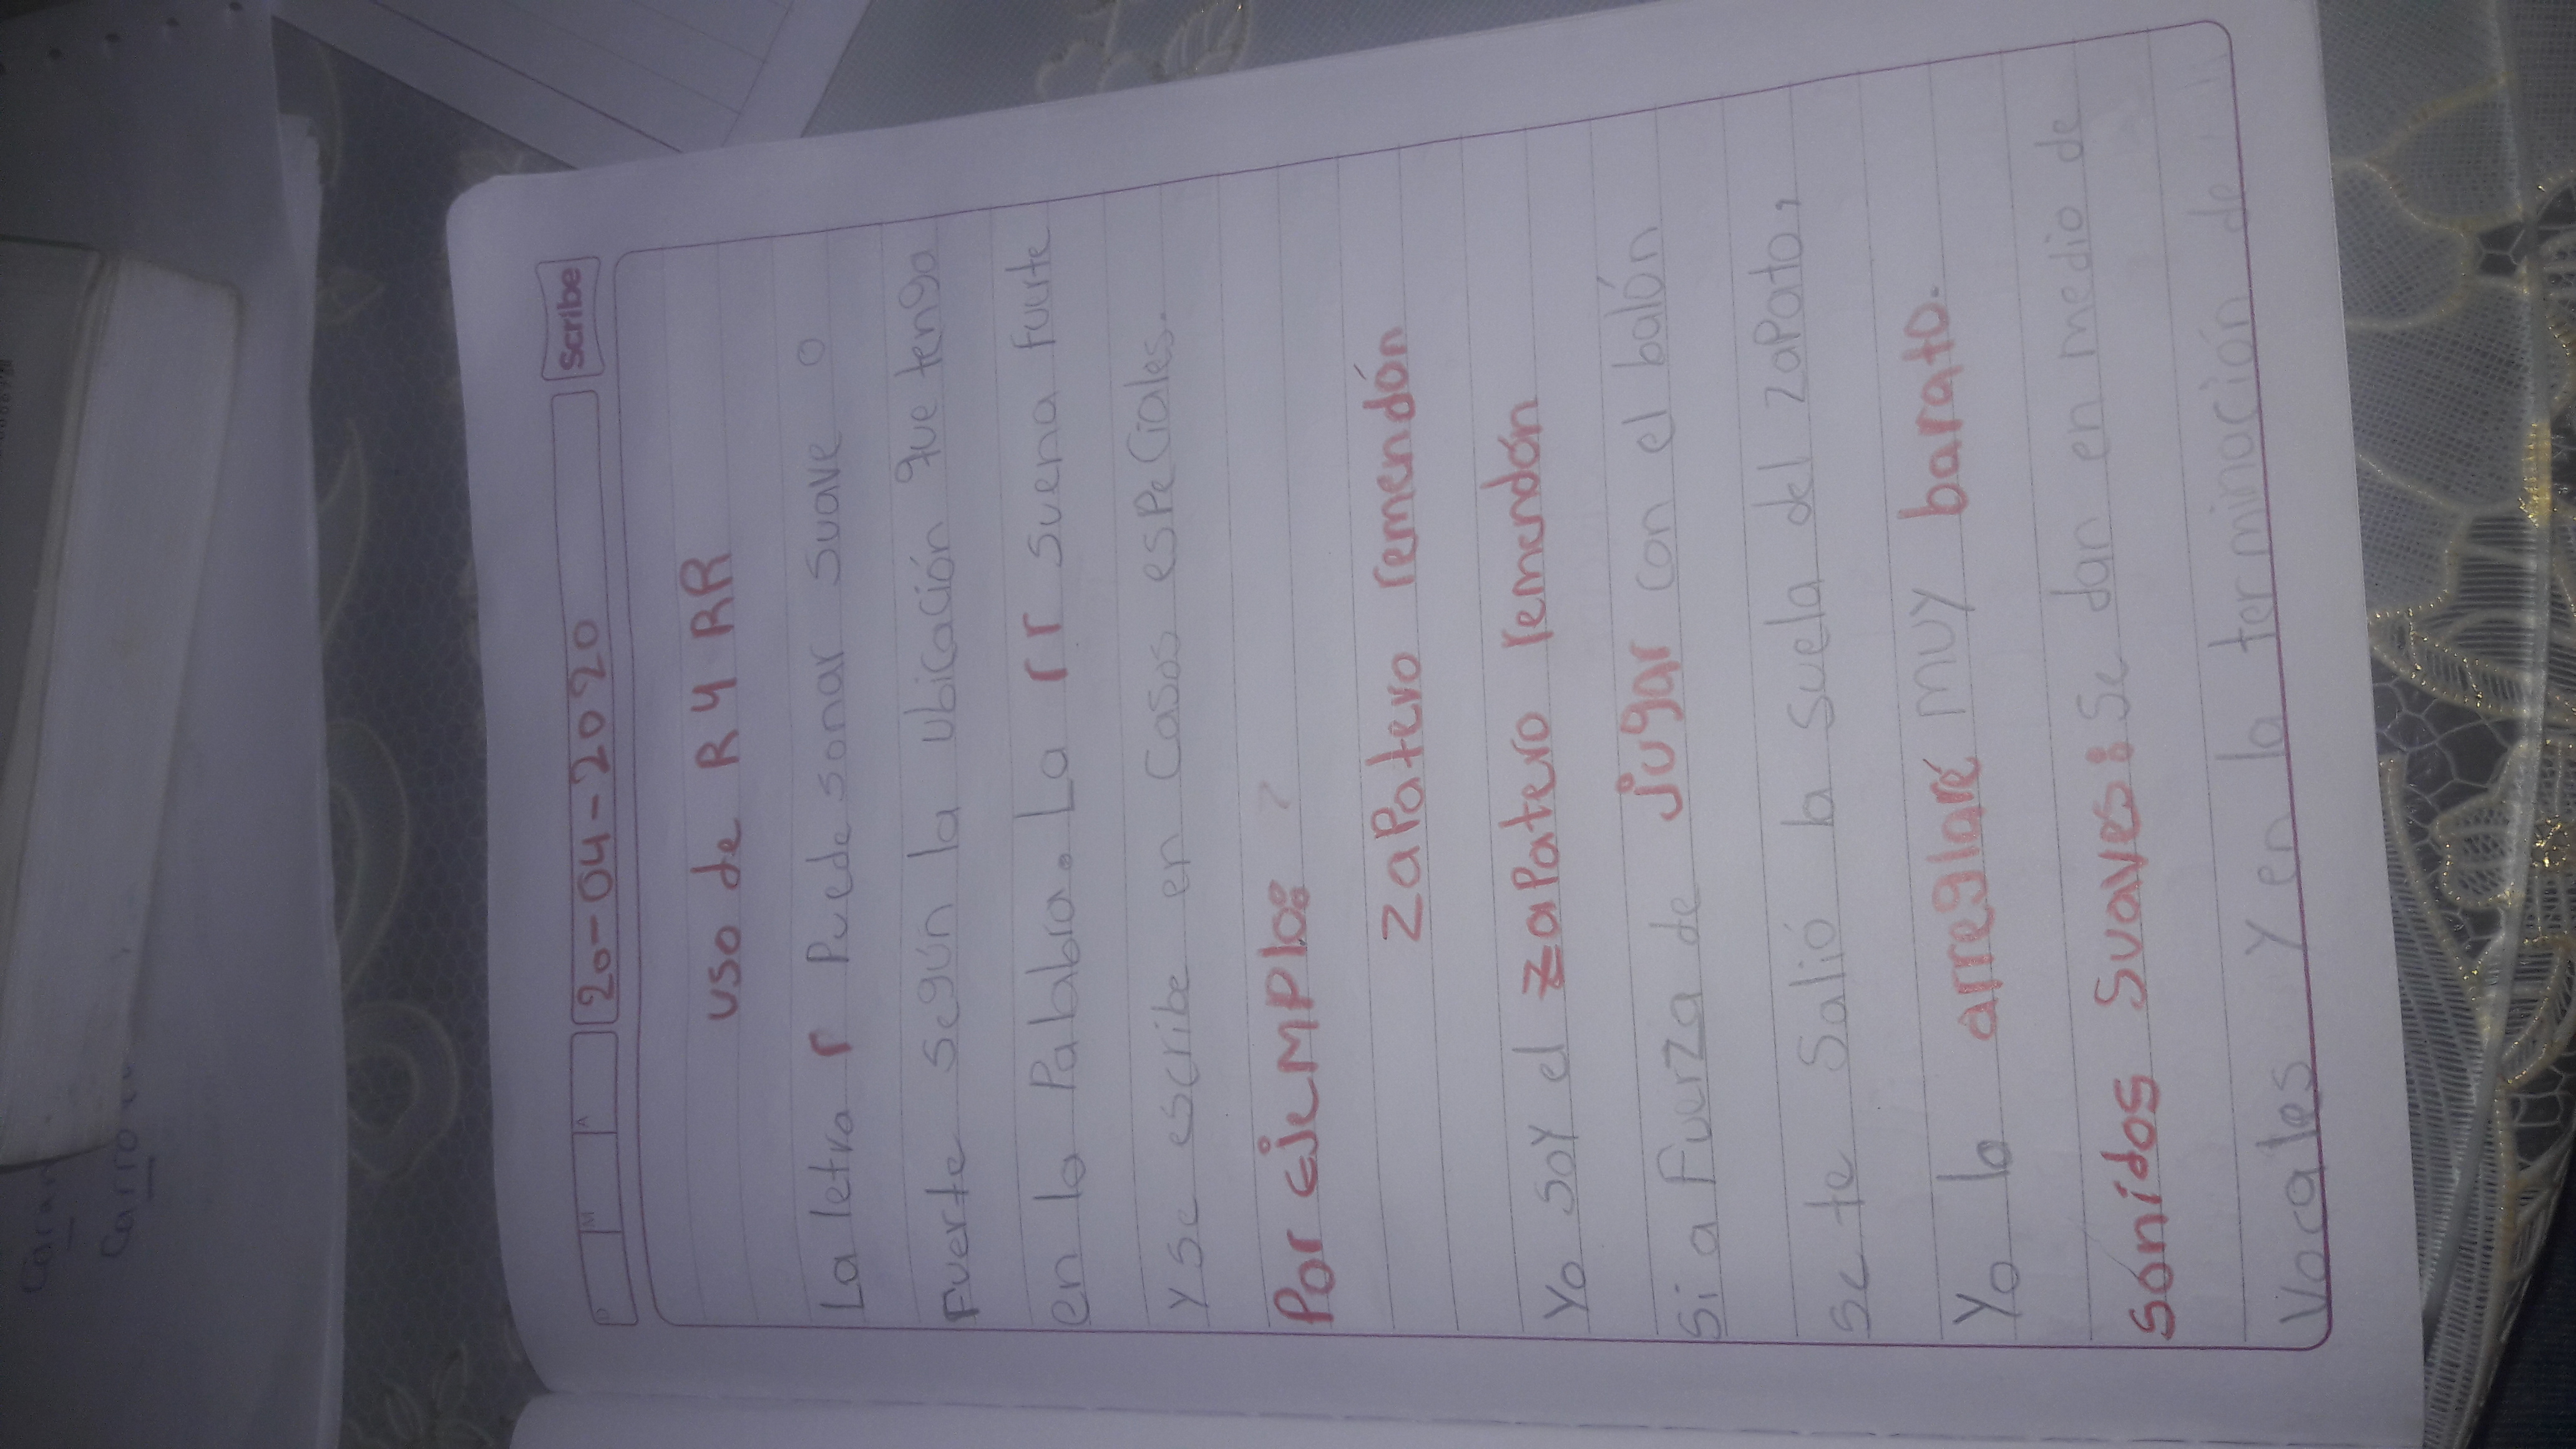 Carro
D M A 20-04-2020 Scribe
uso de R Y RR
La letra r Puede sonar suave o
Fuerte según la ubicación que tenga
en la Palabra. La rr suena fuerte
y se escribe en casos especiales.
Por ejemplo:
zapatero remendón
Yo soy el zapatero remendón
si a Fuerza de jugar con el balón
se te salió la suela del zapato,
Yo lo arreglaré muy barato.
sonidos suaves: se dan en medio de
vocales y en la terminación de